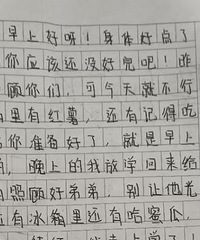 早上好呀！身体好点了
你应该还没好完吧！昨
顾你们，可今天就不行
里有红薯，还有记得吃
你准备好了，就是早上
，晚上的我放学回来给
照顾好弟弟，别让他光
有冰箱里还有哈蜜瓜，